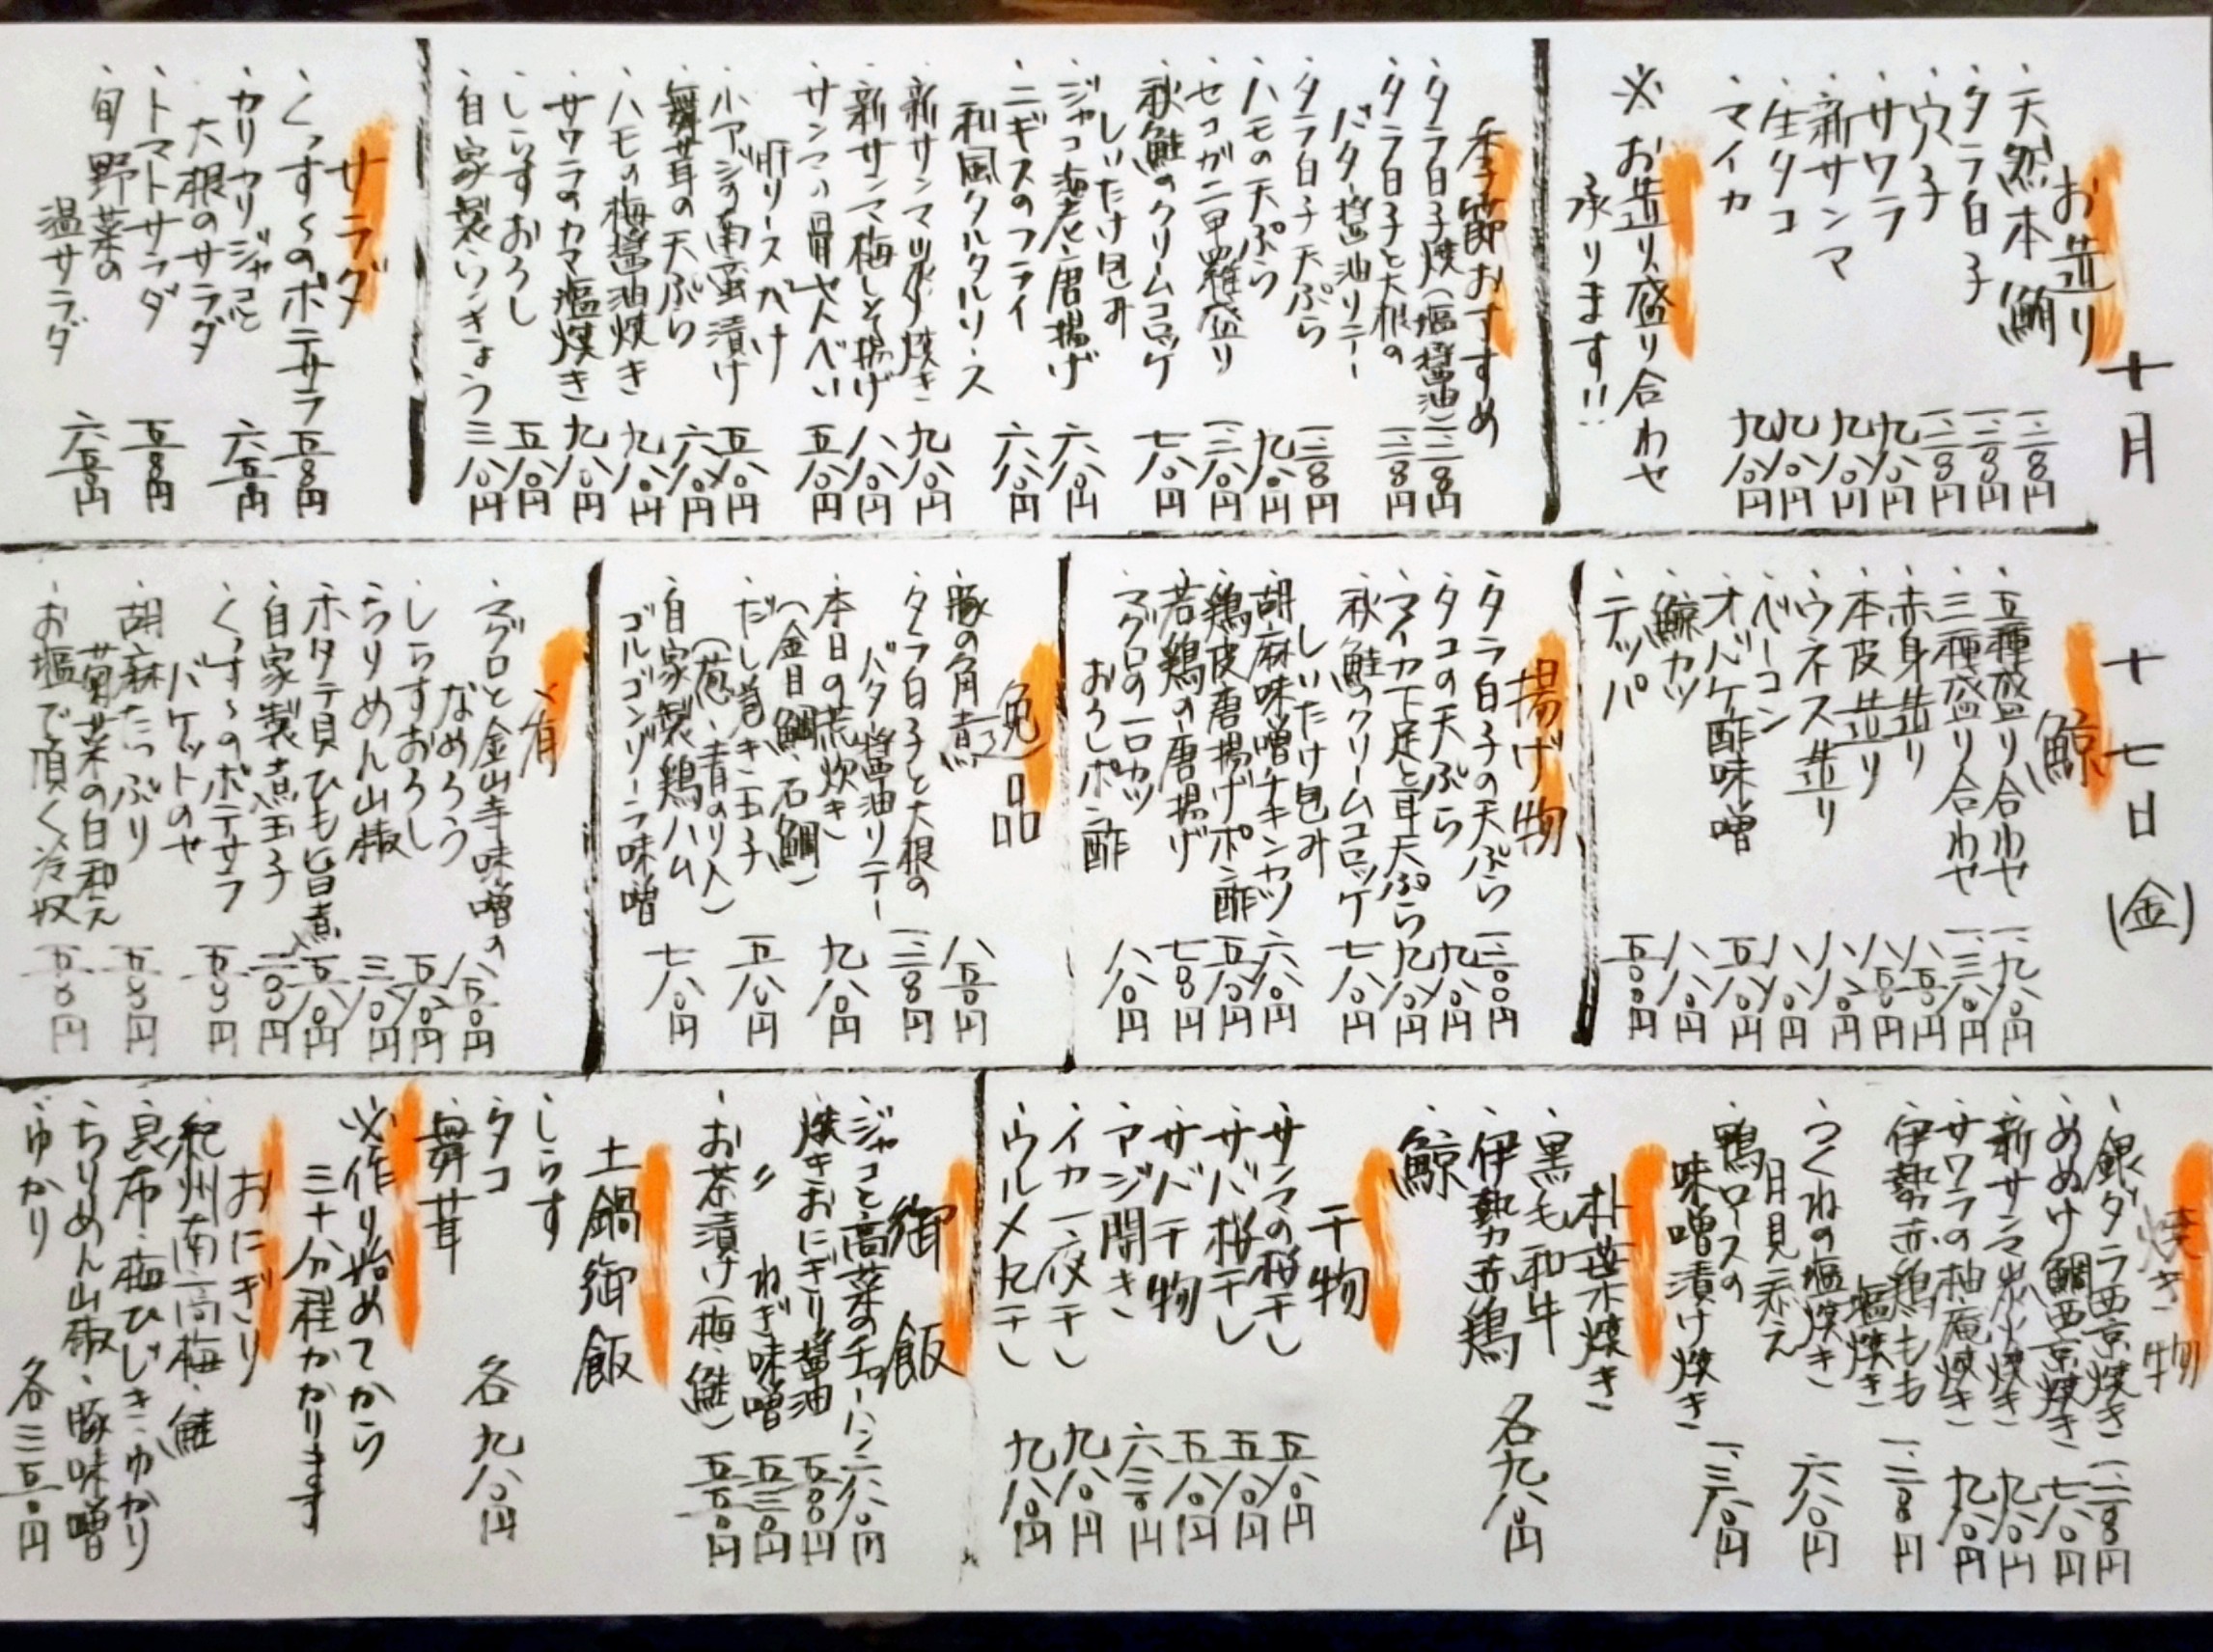 十月十七日(金)
お造り
・天然本鮪 一、二八〇円
・タラ白子 一、二八〇円
・穴子 一、二八〇円
・サワラ 九八〇円
・新サンマ 九八〇円
・生タコ 九八〇円
・マイカ 九八〇円
※お造り盛り合わせ
承ります!!
季節おすすめ
・タラ白子焼(塩・醤油) 一、二八〇円
・タラ白子と大根の
バター醤油ソテー 一、二八〇円
・タラ白子天ぷら 一、二八〇円
・ハモの天ぷら 九八〇円
・セコガニ甲羅盛り
・秋鮭のクリームコロッケ
しいたけ包み 七八〇円
・ジャコ海老唐揚げ 六八〇円
・ニギスのフライ
和風タルタルソース 六八〇円
・新サンマ
・新サンマ梅しそ揚げ 八八〇円
・サンマの骨せんべい
肝ソースがけ 五八〇円
・小アジの南蛮漬け 五八〇円
・舞茸の天ぷら 六八〇円
・ハモの梅醤油焼き 九八〇円
・サワラのカマ塩焼き 九八〇円
・しらすおろし 五八〇円
・自家製らっきょう 三八〇円
サラダ
・くっす〜のポテサラ 五八〇円
・カリカリジャコと
大根のサラダ 六五〇円
・トマトサラダ 五八〇円
・旬野菜の
温サラダ 六五〇円
鯨
・五種盛り合わせ 一、九八〇円
・三種盛り合わせ 一、三八〇円
・赤身造り 八五〇円
・本皮造り 八五〇円
・ウネス造り 八八〇円
・ベーコン 八八〇円
・オバケ酢味噌 五八〇円
・鯨カツ 八八〇円
・テッパ 五〇〇円
揚げ物
・タラ白子の天ぷら
・タコの天ぷら 九八〇円
・マイカ下足と耳天ぷら 九八〇円
・秋鮭のクリームコロッケ
しいたけ包み 七八〇円
・胡麻味噌チキンカツ 六八〇円
・鶏皮唐揚げポン酢 五八〇円
・若鶏の唐揚げ 七八〇円
・マグロの一口カツ
おろしポン酢 八八〇円
逸品
・豚の角煮 八五〇円
・タラ白子と大根の
バター醤油ソテー 一、二八〇円
・本日の荒炊き
(金目鯛・石鯛) 九八〇円
・だし巻き玉子
(葱・青のり入) 五八〇円
・自家製鶏ハム
ゴルゴンゾーラ味噌 七八〇円
肴
・マグロと金山寺味噌の
なめろう 八五〇円
・しらすおろし 五八〇円
・ちりめん山椒 三八〇円
・ホタテ貝ひも旨煮 五八〇円
・自家製煮玉子 二八〇円
・くっす〜のポテサラ
バケットのせ 五八〇円
・胡麻たっぷり
菊菜の白和え 五八〇円
・お塩で頂く冷奴 五八〇円
焼き物
・銀ダラ西京焼き 一、二八〇円
・めぬけ鯛西京焼き 七八〇円
・新サンマ炭火焼き 九八〇円
・サワラの柚庵焼き 九八〇円
・伊勢赤鶏もも
塩焼き 一、二八〇円
・つくねの塩焼き
月見添え 六八〇円
・鴨ロースの
味噌漬け焼き 一、三八〇円
朴葉焼き
・黒毛和牛
・伊勢赤鶏
・鯨
各九八〇円
干物
・サンマの桜干し 五八〇円
・サバ桜干し 五八〇円
・サバ干物 五八〇円
・アジ開き 六三〇円
・イカ一夜干し 九八〇円
・ウルメ丸干し 九八〇円
御飯
・ジャコと高菜のチャーハン 六八〇円
・焼きおにぎり醤油 五〇〇円
・〃 ねぎ味噌 五三〇円
・お茶漬け(梅・鮭) 五五〇円
土鍋御飯
・しらす
・タコ
・舞茸
各九八〇円
※作り始めてから
三十分程かかります
おにぎり
・紀州南高梅・鮭
・昆布・梅ひじき・ゆかり
・ちりめん山椒・豚味噌
・ゆかり
各三五〇円